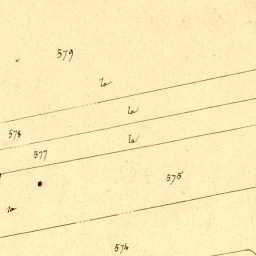 579
la
la
578
la
577
575
la
574